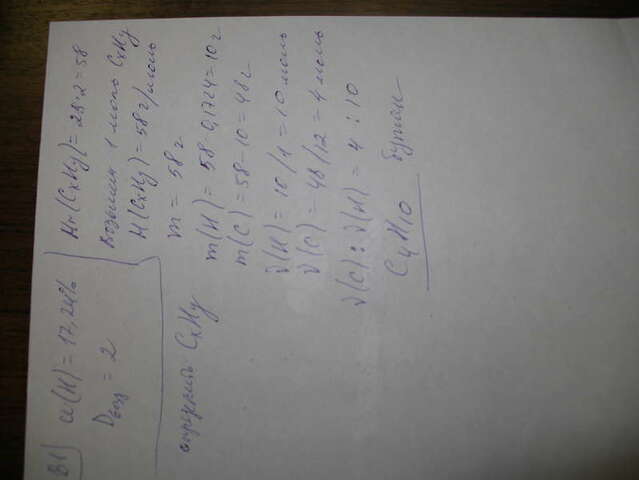 В1
ω(H) = 17,24%
Dвозд = 2
определить CxHy
Mr(CxHy) = 29·2 = 58
Возьмем 1 моль CxHy
M(CxHy) = 58 г/моль
m = 58 г
m(H) = 58·0,1724 = 10 г
m(C) = 58-10 = 48 г
ν(H) = 10/1 = 10 моль
ν(C) = 48/12 = 4 моль
ν(C) : ν(H) = 4 : 10
C4H10 бутан